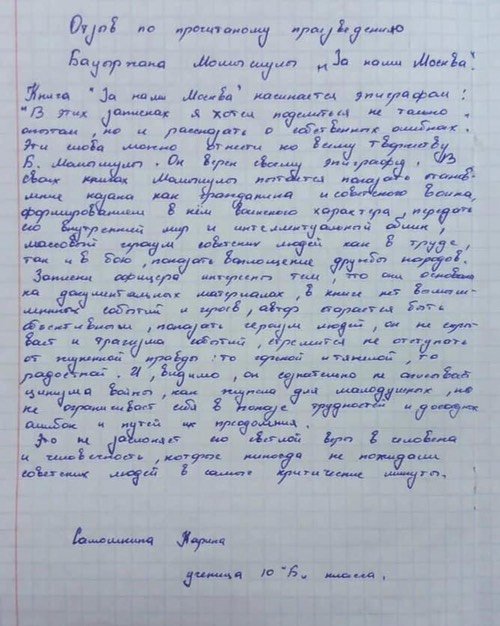 Отзыв по прочитаному произведению
Бауыржана Момышулы „За нами Москва".
Книга "За нами Москва" насинается эпиграфом:
"В этих записках я хотел поделиться не только
опытом, но и рассказать о собственных ошибках."
Эти слова можно отнести ко всему творчеству
Б. Момышулы. Он верен своему эпиграфу. В
своих книгах Момышулы пытается показать становле-
ние казаха как гражданина и советского воина,
формированием в нём воинского характера, передать
его внутренний мир и интеллектуальный облик,
массовый героизм советских людей как в труде,
так и в бою, показать воплощение дружбы народов.
Записки офицера интересны тем, что они основаны
на документальных материалах, в книге нет вымыш-
ленных событий и героев, автор старается быть
объективным, показать героизм людей, он не скры-
вает и трагизма событий, стремится не отступать
от жизненной правды: то горькой и тяжелой, то
радостной. И, видимо, он сознательно не описывает
цинизма войны, как жупела для малодушных, но
не ограничивает себя в показе трудностей и досадных
ошибок и путей их преодоления.
Это не заслоняет его светлой веры в человека
и человечность, которые никогда не покидали
советских людей в самые критические минуты.
Самошкина Карина
ученица 10 "Б" класса.